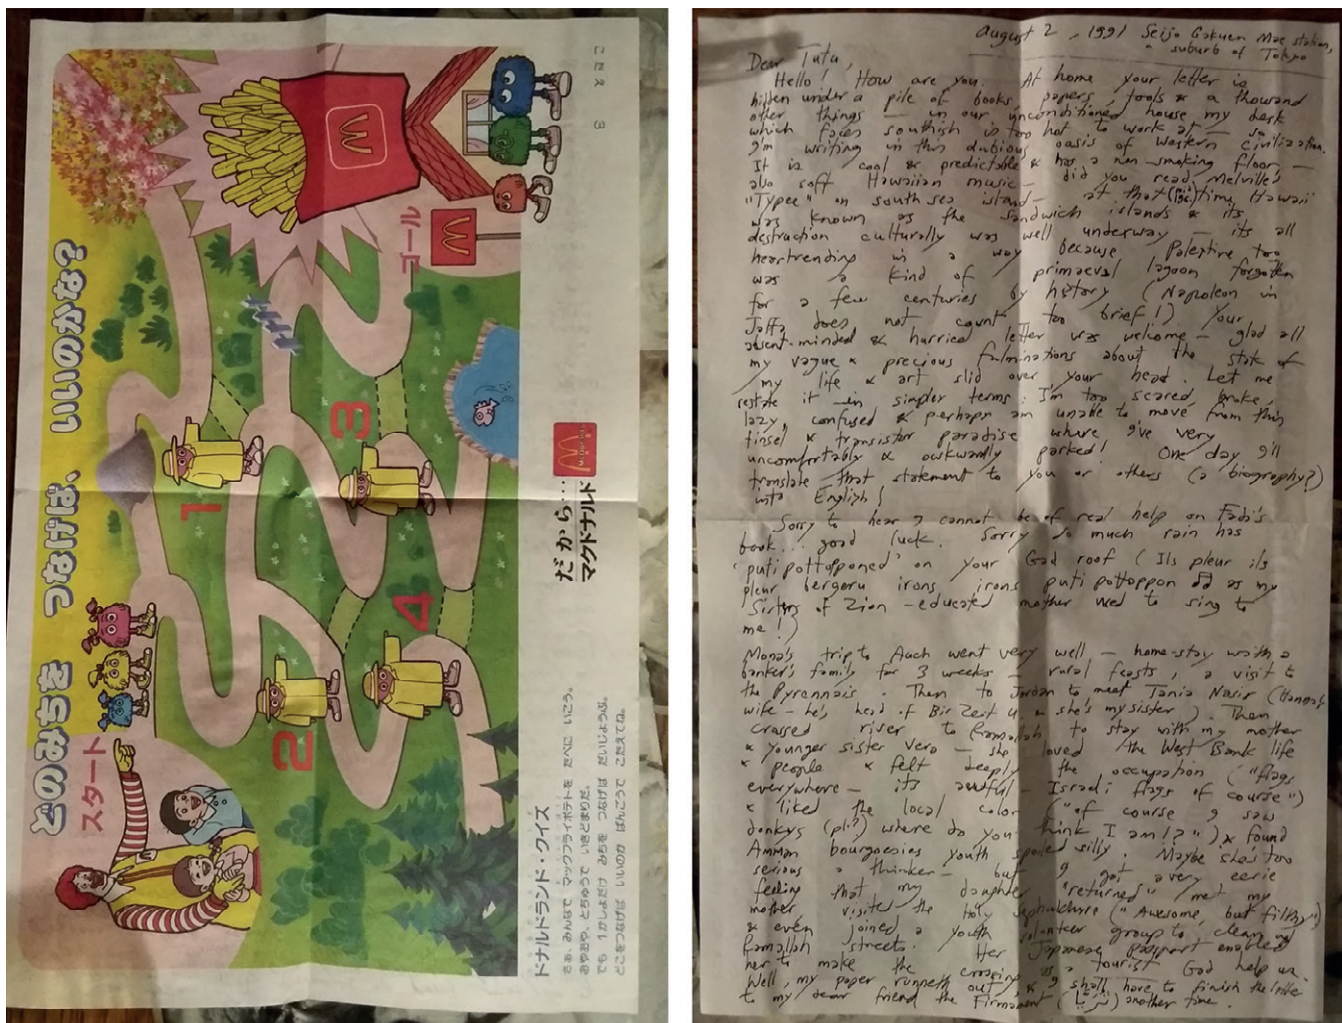 どのみちを つなげば、いいのかな?
スタート
1
2
3
4
ゴール
ドナルドランド・クイズ
さぁ、みんなで マックフライポテトを たべに いこう。
おやおや、とちゅうで いきどまりだ。
でも 1かしょだけ みちを つなげば だいじょうぶ。
どこをつなげば いいのか ばんごうで こたえてね。
だから…
マクドナルド
McDonald's
こたえ 3
August 2, 1991 Seijo Gakuen Mae station,
a suburb of Tokyo
Dear Tutu,
Hello! How are you. At home your letter is
hidden under a pile of books, papers, tools & a thousand
other things — in our unconditioned house my desk
which faces southish is too hot to work at — so
I'm writing in this dubious oasis of western civilization.
It is cool & predictable & has a non-smoking floor —
also soft Hawaiian music — did you read Melville's
"Typee" on south sea island — at that time Hawaii
was known as the Sandwich islands & its
destruction culturally was well underway — its all
heartrending in a way because Palestine too
was a kind of primaeval lagoon forgotten
for a few centuries by history (Napoleon in
Jaffa does not count too brief!) Your
absent-minded & hurried letter was welcome — glad all
my vague & precious fulminations about the state of
my life & art slid over your head. Let me
restate it in simpler terms: I'm too scared, broke,
lazy, confused & perhaps am unable to move from this
tinsel & transistor paradise where I've very
uncomfortably & awkwardly parked! One day I'll
translate that statement to you or others (a biography?)
into English!
Sorry to hear I cannot be of real help on Fadi's
book... good luck. Sorry so much rain has
"puti pottopponed" on your Gad roof (Ils pleur ils
pleur bergeru irons irons puti pottoppon ♫ as my
Sisters of Zion-educated mother used to sing to
me!)
Mona's trip to Auch went very well — home-stay with a
banker's family for 3 weeks — rural feasts, a visit to
the Pyrennais. Then to Jordan to meet Tania Nasir (Hanna's
wife — he's head of Bir Zeit U. & she's my sister). Then
crossed river to Ramallah to stay with my mother
& younger sister Vera — she loved the West Bank life
& people & felt deeply the occupation ("flags
everywhere — it's awful — Israeli flags of course")
& liked the local color ("of course I saw
donkys (pl?) where do you think I am!?") & found
Amman bourgoesies youth spoiled silly. Maybe she's too
serious a thinker — but I got a very eerie
feeling that my daughter "returned" met my
mother visited the Holy Sephulchure ("Awesome, but filthy")
& even joined a youth volunteer group to clean up
Ramallah streets. Her Japanese passport enabled
her to make the crossing as a tourist God help us.
Well, my paper runneth out, & I shall have to finish the letter
to my dear friend the Firmament another time.